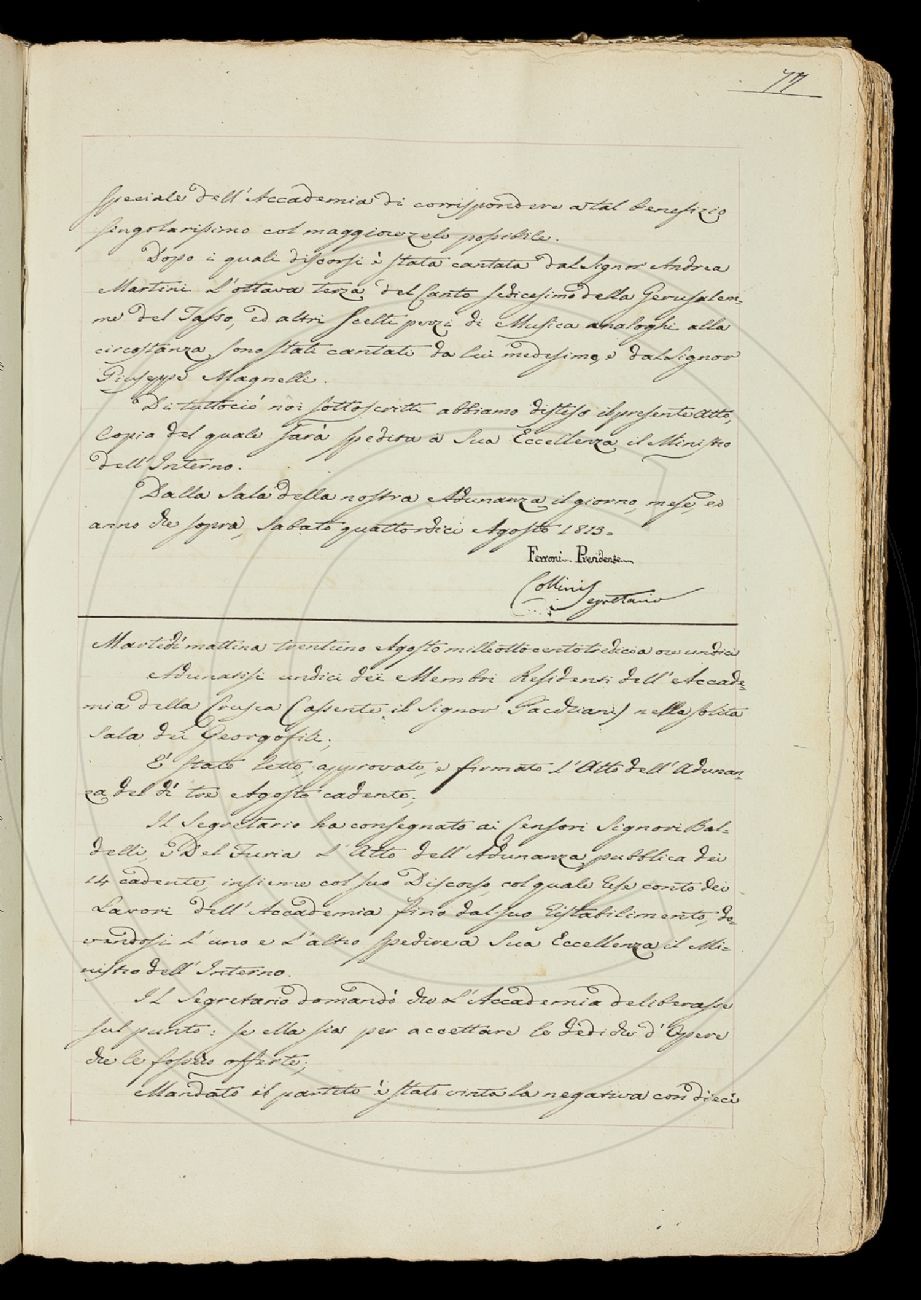 77
speciale dell'Accademia di corrispondere a tal benefizio
singolarissimo col maggiore zelo possibile.
Dopo i quali discorsi è stata cantata dal Signor Andrea
Martini l'ottava terza del Canto sedicesimo della Gerusalem-
me del Tasso, ed altri scelti pezzi di Musica analoghi alla
circostanza sono stati cantati da lui medesimo, e dal Signor
Giuseppe Magnelli.
Di tuttociò noi sottoscritti abbiamo disteso il presente Atto,
Copia del quale sarà spedita a Sua Eccellenza il Ministro
dell'Interno.
Dalla Sala della nostra Adunanza il giorno, mese, ed
anno che sopra, Sabato quattordici Agosto 1813.
Ferroni Presidente
Collini Segretario
Martedì mattina trentuno Agosto mille otto cento tredici a ore undici
Adunatisi undici dei Membri Residenti dell'Accade-
mia della Crusca (assente il Signor ) nella solita
Sala dei Georgofili;
È stato letto, approvato, e firmato l'Atto dell'Adunan-
za del dì tre Agosto cadente;
Il Segretario ha consegnato ai Censori Signori Bal-
delli, e Del Furia l'Atto dell'Adunanza pubblica dei
14 cadente, insieme col suo Discorso col quale rese conto dei
Lavori dell'Accademia fino dal suo ristabilimento, do-
vendosi l'uno e l'altro spedire a Sua Eccellenza il Mi-
nistro dell'Interno.
Il Segretario domandò che l'Accademia deliberasse
sul punto: se ella sia per accettare le dediche d'Opere
che le fossero offerte;
Mandato il partito è stata vinta la negativa con dieci